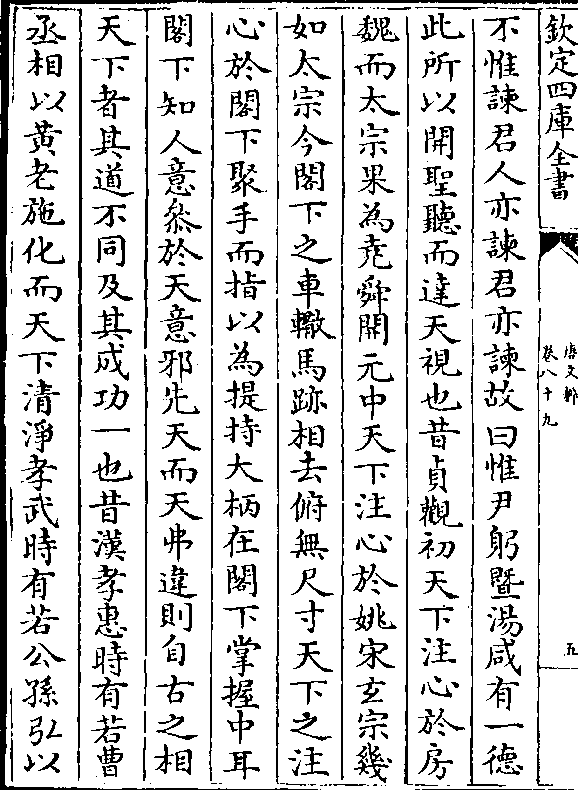 欽定四庫全書
唐文粹
卷八十九
五
不惟諫君人亦諫君亦諫故曰惟尹躬暨湯咸有一德
此所以開聖聽而達天視也昔貞觀初天下注心於房
魏而太宗果為堯舜開元中天下注心於姚宋玄宗幾
如太宗今閣下之車轍馬跡相去俯無尺寸天下之注
心於閣下聚手而指以為提持大柄在閣下掌握中耳
閣下知人意叅於天意邪先天而天弗違則自古之相
天下者其道不同及其成功一也昔漢孝惠時有若曹
丞相以黃老施化而天下清淨孝武時有若公孫弘以